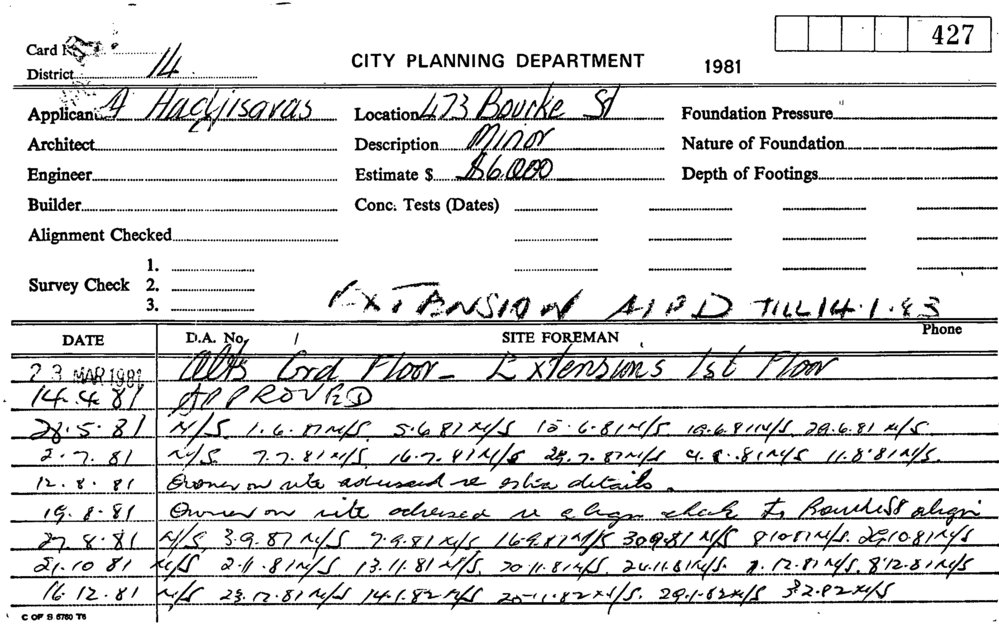 427
Card No
CITY PLANNING DEPARTMENT 1981
District 14
Applicant A Hadjisavas Location 473 Bourke St Foundation Pressure
Architect Description Minor Nature of Foundation
Engineer Estimate $ $6,000 Depth of Footings
Builder Conc. Tests (Dates)
Alignment Checked
1.
Survey Check 2.
3.
EXTENSION AIPD TILL 14.1.83
DATE D.A. No. SITE FOREMAN Phone
23 MAR 1981 Alts Grd Floor - Extensions 1st Floor
14.4.81 APPROVED
28.5.81 N/S. 1.6.81 N/S 5.6.81 N/S 15.6.81 N/S. 19.6.81 N/S. 29.6.81 N/S.
2.7.81 N/S. 7.7.81 N/S. 16.7.81 N/S 28.7.81 N/S 4.8.81 N/S 11.8.81 N/S.
12.8.81 Owner on site advised re extra details.
19.8.81 Owner on site advised re align check to Bourke St align
27.8.81 N/S 3.9.81 N/S 7.9.81 N/S 16.9.81 N/S 30.9.81 N/S 8.10.81 N/S. 20.10.81 N/S
21.10.81 N/S 2.11.81 N/S 13.11.81 N/S. 20.11.81 N/S. 24.11.81 N/S. 1.12.81 N/S. 8.12.81 N/S
16.12.81 N/S 23.12.81 N/S 14.1.82 N/S 20.1.82 N/S. 29.1.82 N/S 3.2.82 N/S
C OF S 6760 T6